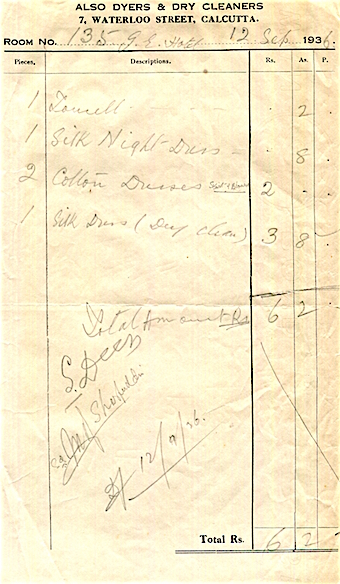 ALSO DYERS & DRY CLEANERS
7, WATERLOO STREET, CALCUTTA.
ROOM No. 135, G. E. Hotel 12 Sep. 1936.
Pieces. Descriptions. Rs. As. P.
1 Towell 2
1 Silk Night Dress 8
2 Cotton Dresses 2
1 Silk Dress (Dry Clean) 3 8
Total Amount Rs 6 2
S. Deen
12/9/36.
Total Rs. 6 2